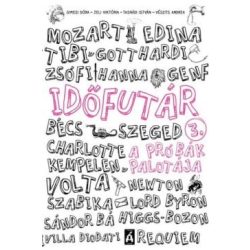 GIMESI DÓRA – JELI VIKTÓRIA – TASNÁDI ISTVÁN – VÉSSEY ANDREA
MOZART EDINA
TIBI GOTTHARDI
ZSÓFI HANNA GENF
IDŐFUTÁR
BÉCS SZEGED 3.
CHARLOTTE A PRÓBÁK
KEMPELEN PALOTÁJA
VOLTA NEWTON
SZABIKA LORD BYRON
SÁNDOR BÁ HIGGS-BOZON
VILLA DIODATI Á REQUIEM